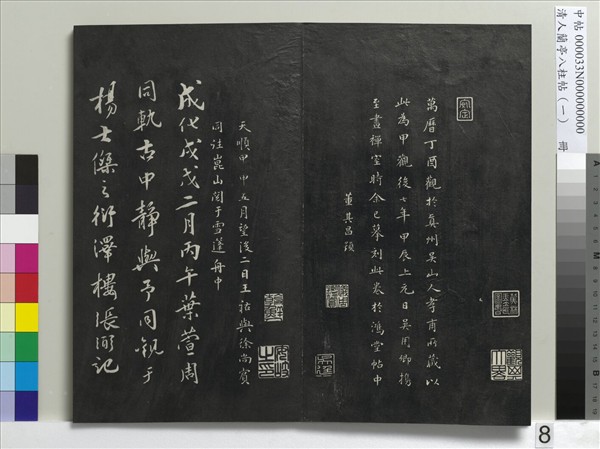 萬曆丁酉觀於真州吳山人孝甫所藏以
此為甲觀後七年甲辰上元日吳用卿攜
至畫禪室時余已摹刻此卷於鴻堂帖中
董其昌題
天順甲申五月望後二日王祐與徐尚賓
同註崑山閱于雪蓬舟中
成化戊戌二月丙午葉萱周
同軌古中靜與予同觀于
楊士傑之衍澤樓張淵記
中帖 000033N000000000
清人蘭亭八柱帖(一) 冊
8